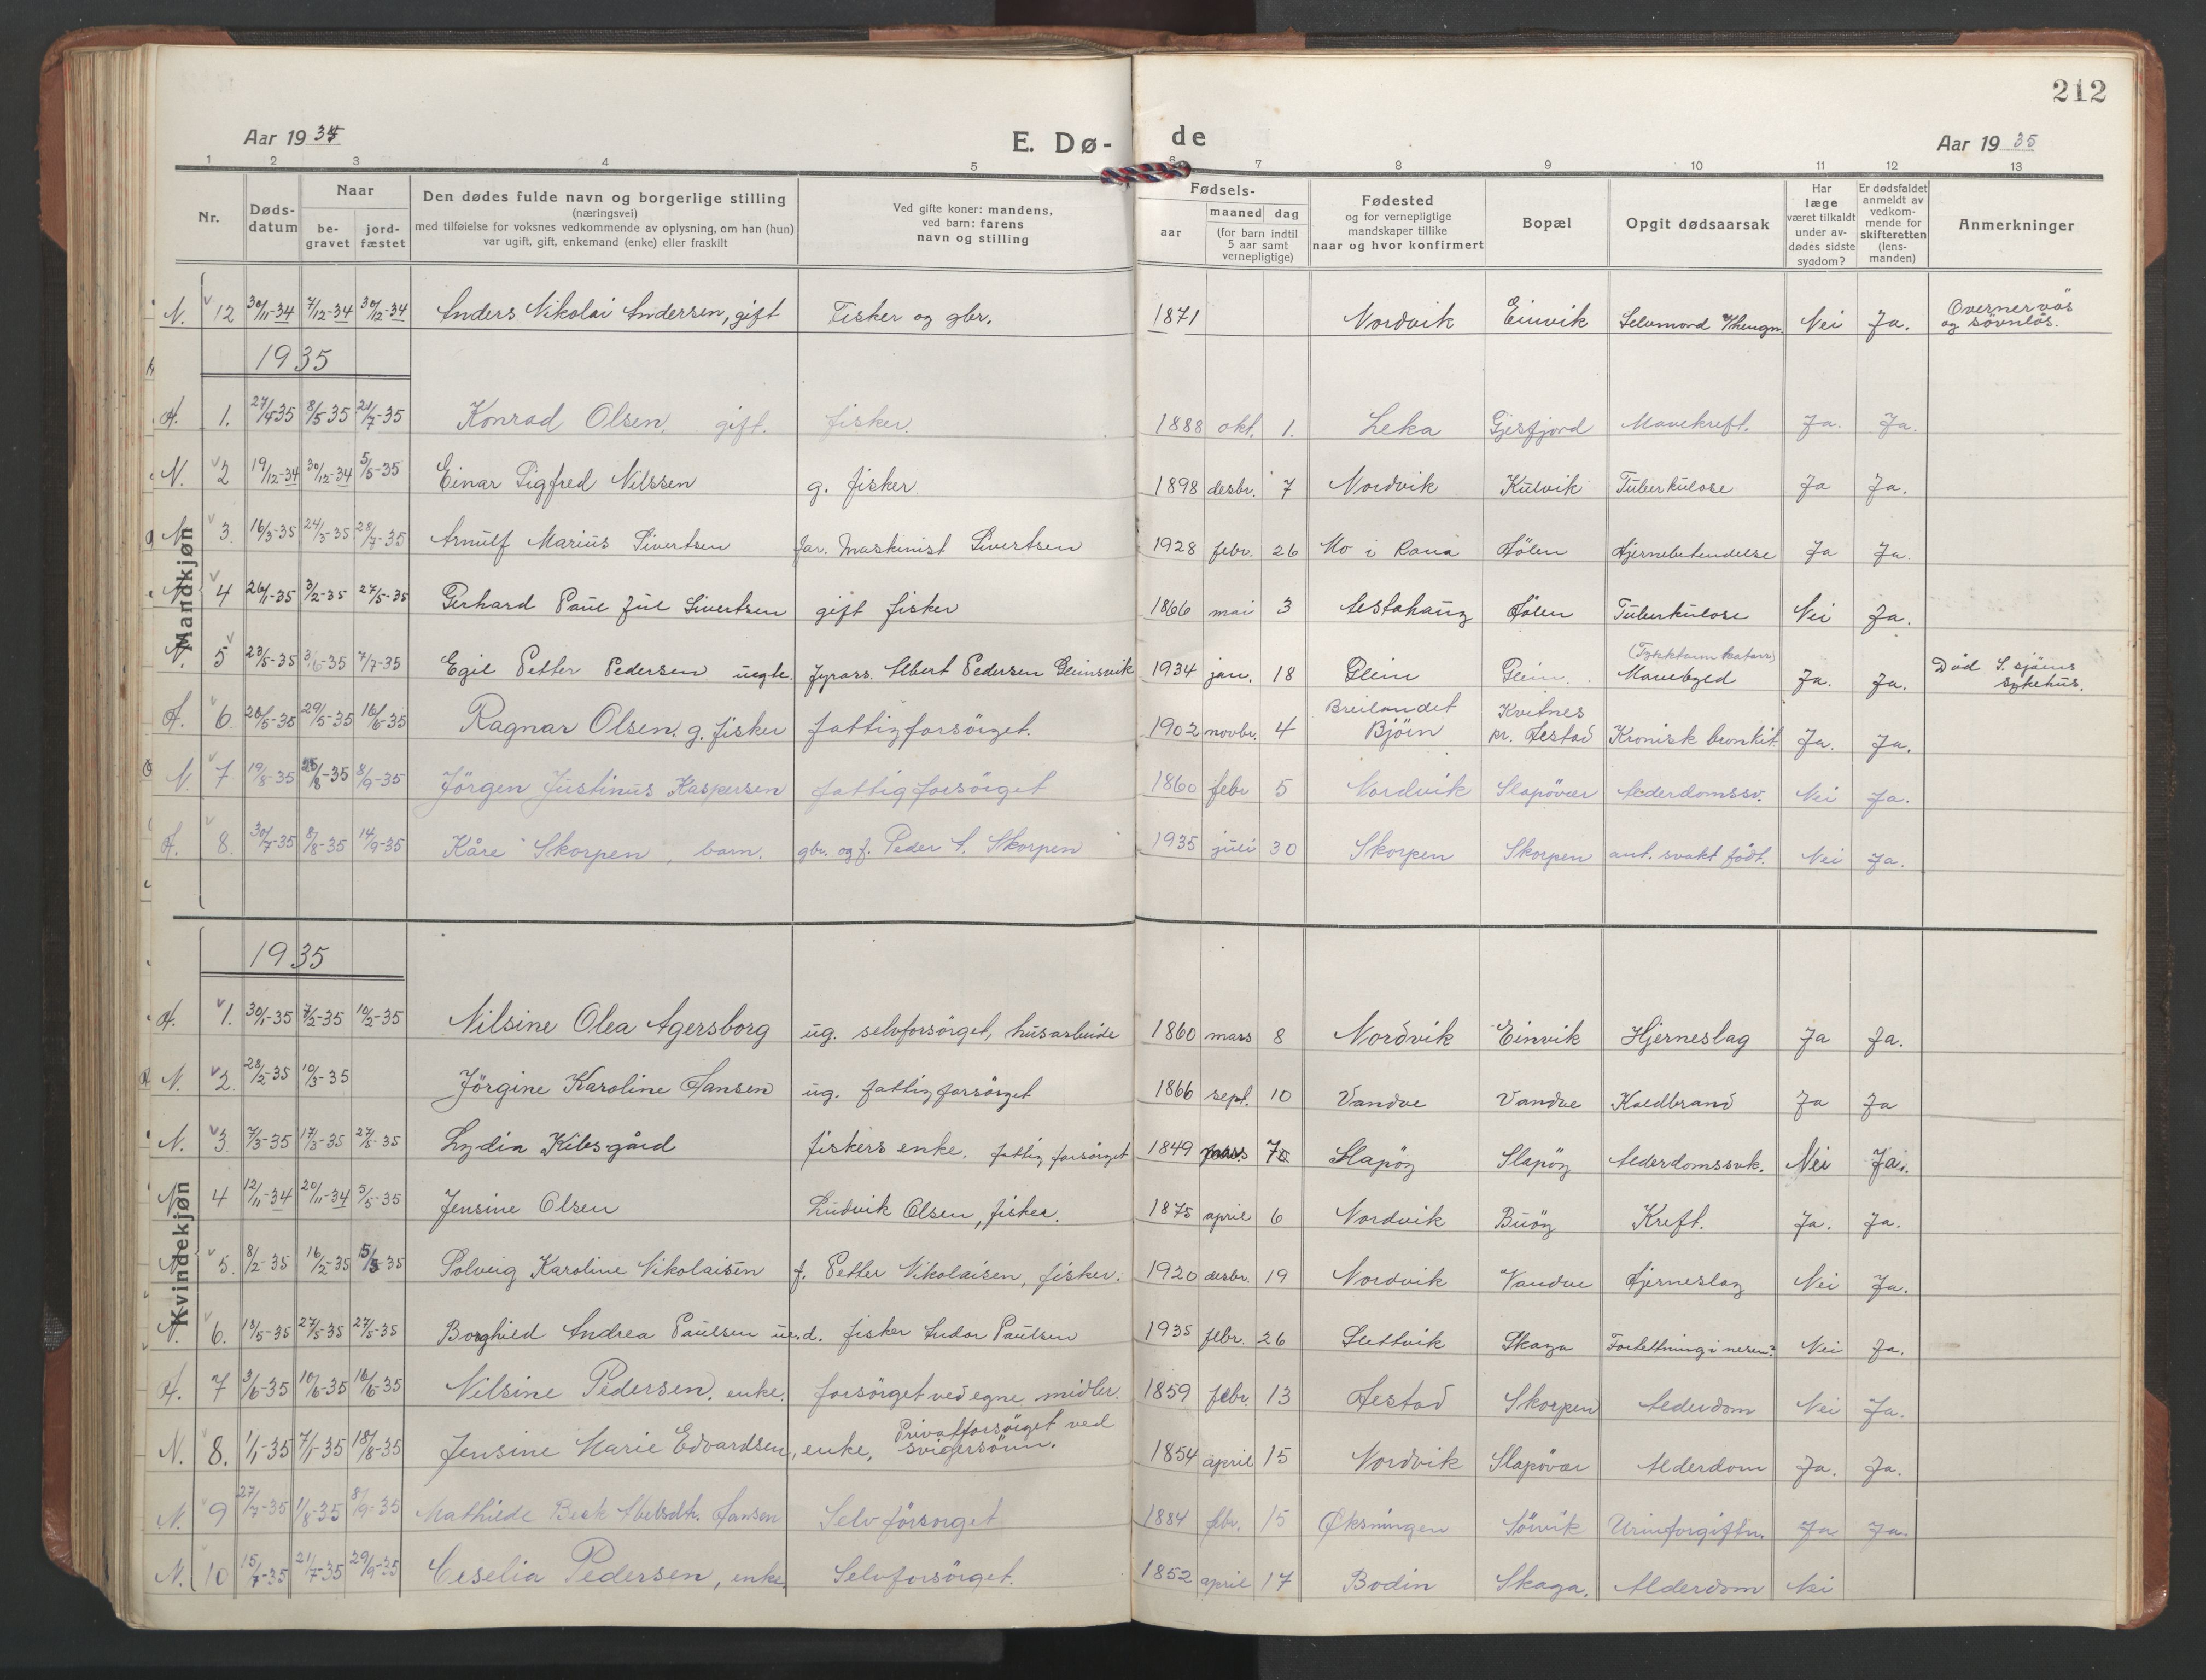 212
Aar 1934 E. Dø- de Aar 1935
1 2 3 4 5 6 7 8 9 10 11 12 13
Nr. Døds-datum Naar be-gravet jord-fæstet Den dødes fulde navn og borgerlige stilling (næringsvei) med tilføielse for voksnes vedkommende av oplysning, om han (hun) var ugift, gift, enkemand (enke) eller fraskilt Ved gifte koner: mandens, ved barn: farens navn og stilling Fødsels- aar maaned dag (for barn indtil 5 aar samt vernepligtige) Fødested og for vernepligtige mandskaper tillike naar og hvor konfirmert Bopæl Opgit dødsaarsak Har læge været tilkaldt under av-dødes sidste sygdom? Er dødsfaldet anmeldt av vedkom-mende for skifteretten (lens-manden) Anmerkninger
Mandkjøn
N. 12 30/11-34 7/12-34 30/12-34 Anders Nikolai Andersen, gift Fisker og gbr. 1871 Nordvik Einvik Selvmord v/hengn. Nei Ja. Overnervös og sövnlös.
1935
H. 1. 27/4 35 8/5 35 21/7-35 Konrad Olsen. gift. fisker. 1888 okt. 1. Leka Gjesfjord Mavekreft. Ja. Ja.
N. 2 19/12-34 30/12-34 5/5-35 Einar Sigfred Nilssen g. fisker 1898 desbr. 7 Nordvik Kulvik Tuberkulose Ja Ja.
N 3. 16/3-35 24/3-35 28/7-35 Arnulf Marius Sivertsen far. Maskinist Sivertsen 1928 febr. 26 Mo i Rana Hölen Hjernebetendelse Ja Ja.
N 4 26/1-35 3/2-35 27/5-35 Gerhard Paul Jul Sivertsen gift fisker 1866 mai 3 Alstahaug Hölen Tuberkulose Nei Ja.
N. 5 23/5-35 3/6-35 7/7-35 Egil Petter Pedersen uegte. fyrass. Albert Pedersen Gleinsvik 1934 jan. 18 Glein Glein. (Tykktarm katarr) Maveblged Ja. Ja. Död S. sjöens sykehus.
H. 6. 20/5-35 29/5-35 16/6-35 Ragnar Olsen. g. fisker fattigforsörget. 1902 novbr. 4 Breilandet Björn Kvitnes pr. Hestad Kronisk bronkit. Ja. Ja.
N. 7 19/8-35 25/8-35 8/9-35 Jörgen Justinus Kaspersen fattigforsörget 1860 febr 5 Nordvik Slapövær Alderdomssv. Nei Ja.
H. 8. 30/7-35 8/8-35 14/9-35 Kåre Skorpen, barn. gbr. og f. Peder A. Skorpen 1935 juli 30 Skorpen Skorpen ant. svakt födt. Nei Ja.
Kvindekjøn
1935
H. 1. 30/1-35 7/2-35 10/2-35 Nilsine Olea Agersborg ug. selvforsörget, husarbeide 1860 mars 8 Nordvik Einvik Hjerneslag Ja Ja.
N. 2. 28/2-35 10/3-35 Jörgine Karoline Hansen ug. fattigforsörget 1866 sept. 10 Vandve Vandve Koldbrand Ja Ja
N. 3. 7/3-35 17/3-35 27/5-35 Lydia Kilsgård fiskers enke. fattigforsörget 1849 mars 7 Slapöy Slapöy Alderdomssvk. Nei Ja.
N 4 12/11-34 20/11-34 5/5-35 Jensine Olsen Ludvik Olsen, fisker. 1875 april 6 Nordvik Buöy Kreft. Ja. Ja.
N 5. 8/2-35 16/2-35 5/5-35 Solveig Karoline Nikolaisen f. Petter Nikolaisen, fisker. 1920 desbr. 19 Nordvik Vandve Hjerneslag Nei Ja.
N. 6. 18/5-35 27/5-35 27/5-35 Borghild Andrea Paulsen ue.d. fisker Ludor Paulsen 1935 febr. 26 Slettvik Skaga Forlettning i nesen? Nei Ja.
H. 7 3/6-35 10/6-35 16/6-35 Nilsine Pedersen. enke. forsörget ved egne midler. 1859 febr. 13 Hestad Skorpen Alderdom Nei Ja.
N. 8. 1/1-35 7/1-35 18/8-35 Jensine Marie Edvardsen, enke, Privatforsörget ved svigersönn. 1854 april 15 Nordvik Slapövær Alderdom Ja. Ja.
N. 9 27/7-35 1/8-35 8/9-35 Mathilde Beck Abelsdtr. Hansen Selvforsorget 1884 febr. 15 Øksningen Sörvik Urinforgiftn. Ja Ja.
N. 10 15/7-35 21/7-35 29/9-35 Ceselia Pedersen, enke Selvforsörget. 1852 april 17 Bodin Skaga. Alderdom Nei